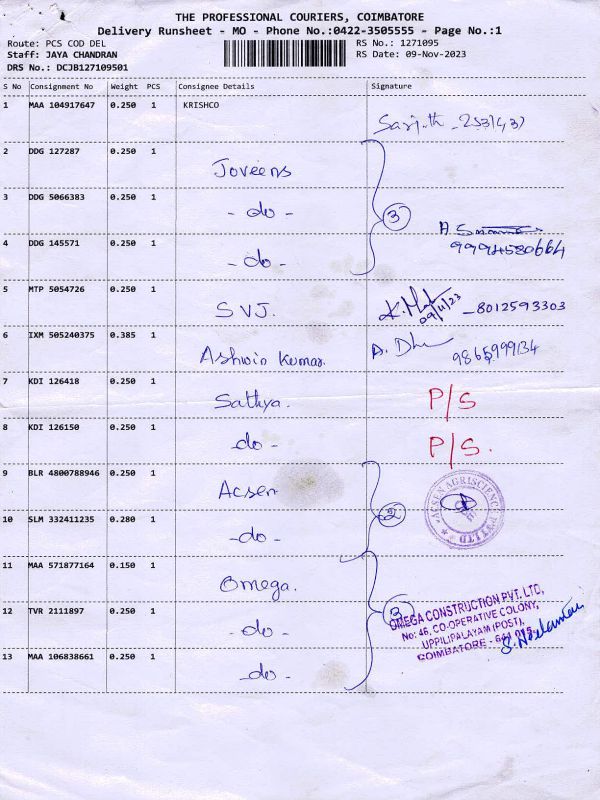 THE PROFESSIONAL COURIERS, COIMBATORE
Delivery Runsheet - MO - Phone No.:0422-3505555 - Page No.:1
Route: PCS COD DEL RS No.: 1271095
Staff: JAYA CHANDRAN RS Date: 09-Nov-2023
DRS No.: DCJB127109501
S No Consignment No Weight PCS Consignee Details Signature
1 MAA 104917647 0.250 1 KRISHCO
2 DDG 127287 0.250 1 Joveens
3 DDG 5066383 0.250 1 - do - 3
4 DDG 145571 0.250 1 - do - 9994580664
5 MTP 5054726 0.250 1 SVJ. 09/11/23 - 8012593303
6 IXM 505240375 0.385 1 Ashwin Kumar.
7 KDI 126418 0.250 1 Sathya. P/S
8 KDI 126150 0.250 1 - do - P/S.
9 BLR 4800788946 0.250 1 Acsen ACSEN AGRISCIENCE PVT LTD
10 SLM 332411235 0.280 1 - do - 2
11 MAA 571877164 0.150 1 Omega.
12 TVR 2111897 0.250 1 - do - 3
OMEGA CONSTRUCTION PVT. LTD,
No: 46, CO-OPERATIVE COLONY,
UPPILIPALAYAM (POST),
COIMBATORE - 641 015.
13 MAA 106838661 0.250 1 - do -